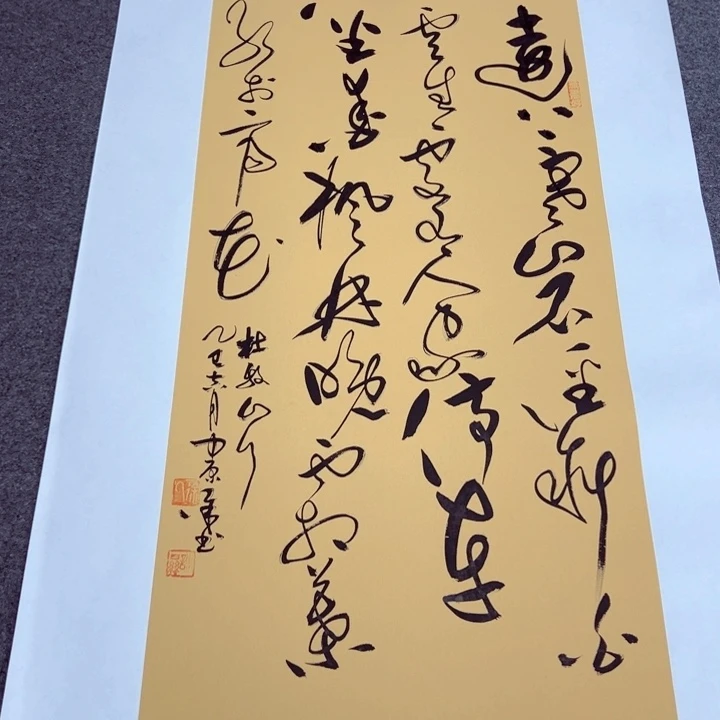 遠上寒山石徑斜白
雲生處有人家停車
坐愛楓林晚霜葉
紅於二月花
杜牧山行
乙巳六月中原書